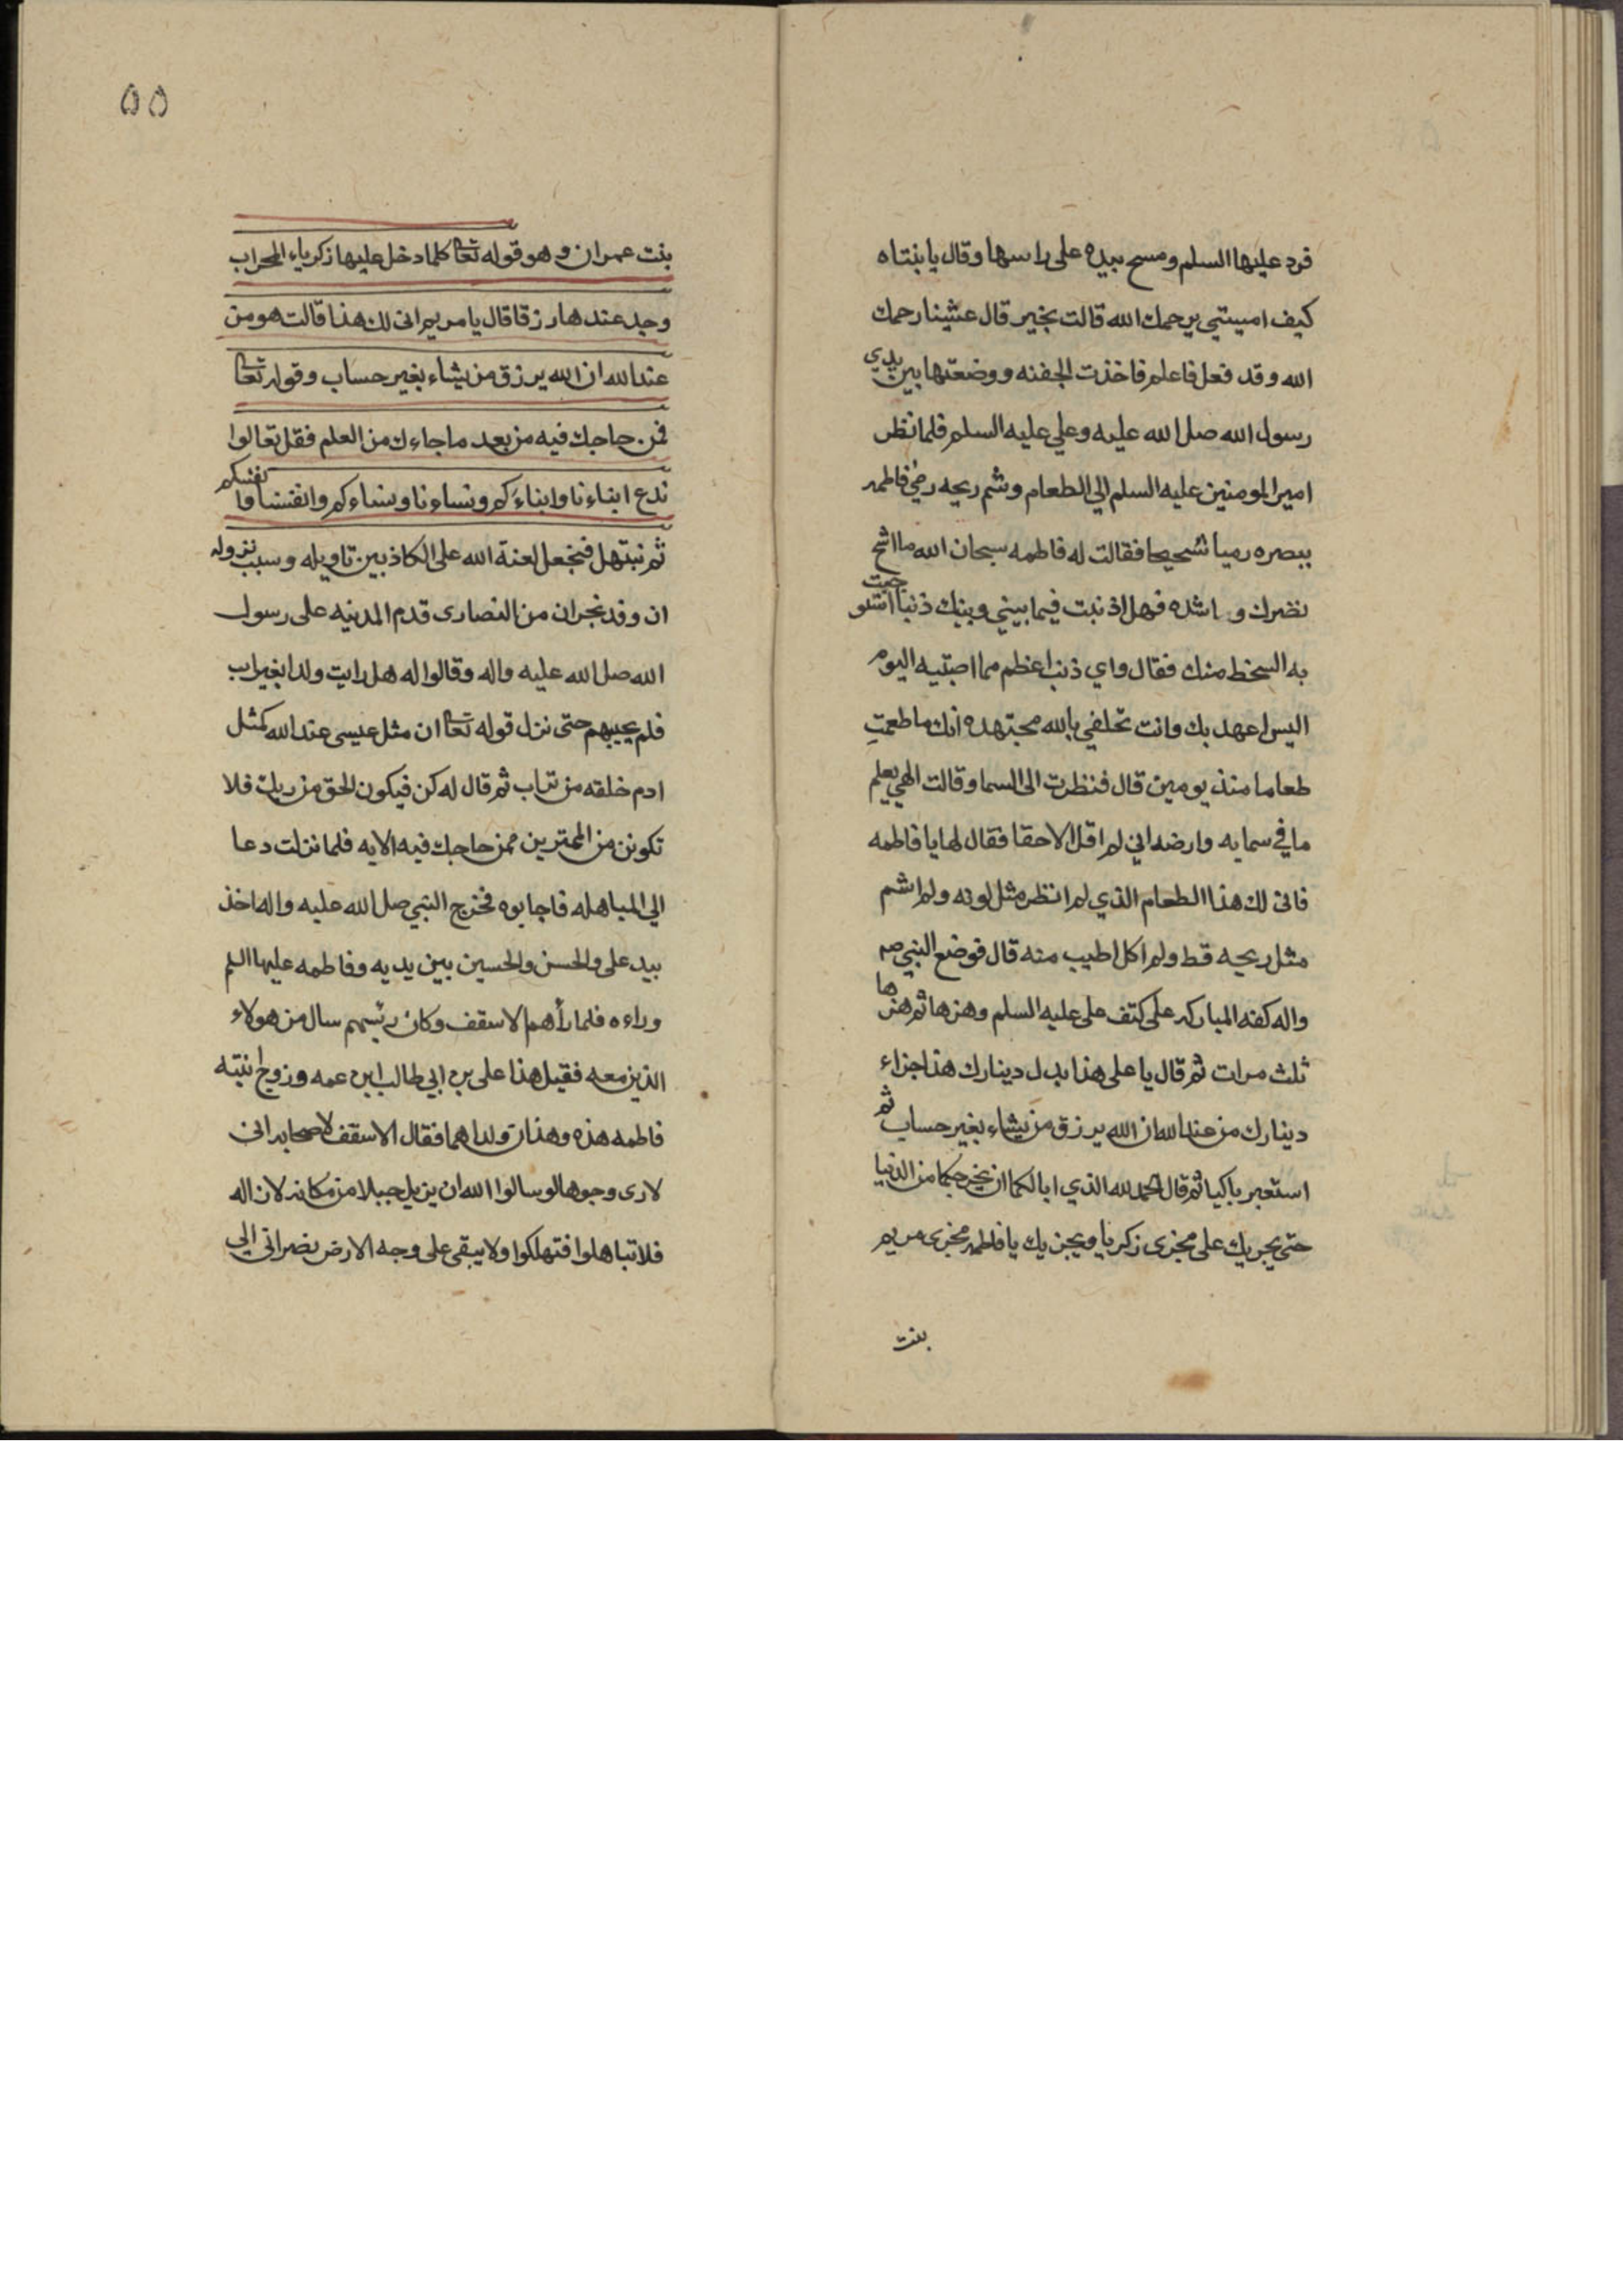 فرد عليها السلم ومسح بيده على راسها وقال يا بنتاه
كيف امسيتي يرحمك الله قالت بخير قال عشينا رحمك
الله وقد فعل فاعلم فاخذت الجفنه ووضعتها بين يدي
رسول الله صلى الله عليه وعلي عليه السلم فلما نظر
امير المومنين عليه السلم الي الطعام وشم ريحه رمى فاطمه
ببصره رميا شحيحا فقالت له فاطمه سبحان الله ما اشح
نضرك واشده فهل اذنبت فيما بيني وبينك ذنبا استوجبت
به السخط منك فقال واي ذنب اعظم مما اصبتيه اليوم
اليس اعهد بك وانت تحلفي بالله مجتهده انك ما طعمتِ
طعاما منذ يومين قال فنظرت الى السما وقالت الهي يعلم
ما في سمايه وارضه اني لم اقل الا حقا فقال لها يا فاطمه
فانى لك هذا الطعام الذي لم انظر مثل لونه ولم اشم
مثل ريحه قط ولم اكل اطيب منه قال فوضع النبي صم
واله كفه المباركه على كتف علي عليه السلم وهزها ثم هزها
ثلث مرات ثم قال يا على هذا بدل دينارك هذا جزاء
دينارك من عند الله ان الله يرزق من يشاء بغير حساب ثم
استعبر باكيا ثم قال الحمد لله الذي ابا لكما ان يخرجكما من الدنيا
حتى يجريك على مجزى زكريا ويجزيك يا فاطمه مجزى مريم
بنت
٥٥
بنت عمران وهو قوله تعا كلما دخل عليها زكرياء المحراب
وجد عندها رزقا قال يا مريم انى لك هذا قالت هو من
عند الله ان الله يرزق من يشاء بغير حساب وقوله تعا
فمن حاجك فيه من بعد ما جاءك من العلم فقل تعالوا
ندع ابناءنا وابناءكم ونساءنا ونساءكم وانفسنا وانفسكم
ثم نبتهل فنجعل لعنة الله على الكاذبين تاويله وسبب نزوله
ان وفد نجران من النصارى قدم المدينه على رسول
الله صلى الله عليه واله وقالوا له هل رايت ولدا بغير اب
فلم يجيبهم حتى نزل قوله تعا ان مثل عيسى عند الله كمثل
ادم خلقه من تراب ثم قال له كن فيكون الحق من ربك فلا
تكونن من الممترين فمن حاجك فيه الايه فلما نزلت دعا
الي المباهله فاجابوه فخرج النبي صلى الله عليه واله اخذ
بيد على والحسن والحسين بين يديه وفاطمه عليها السلم
وراءه فلما رأهم الاسقف وكان رئسهم سال من هولاء
الذين معه فقيل هذا على بن ابي طالب ابن عمه وزوج ابنته
فاطمه هذه وهذان ولداهما فقال الاسقف لاصحابه انى
لارى وجوها لو سالوا الله ان يزيل جبلا من مكانه لازاله
فلا تباهلوا فتهلكوا ولا يبقى على وجه الارض نصراني الي